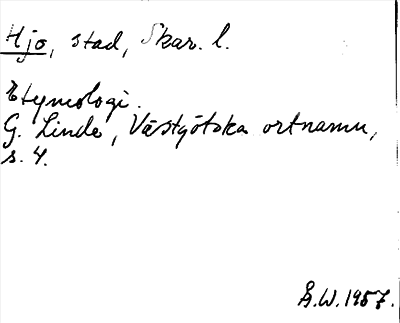 Hjo, stad, Skar. l.
Etymologi.
G. Linde, Västgötska ortnamn,
s. 4.
Å.W. 1957.